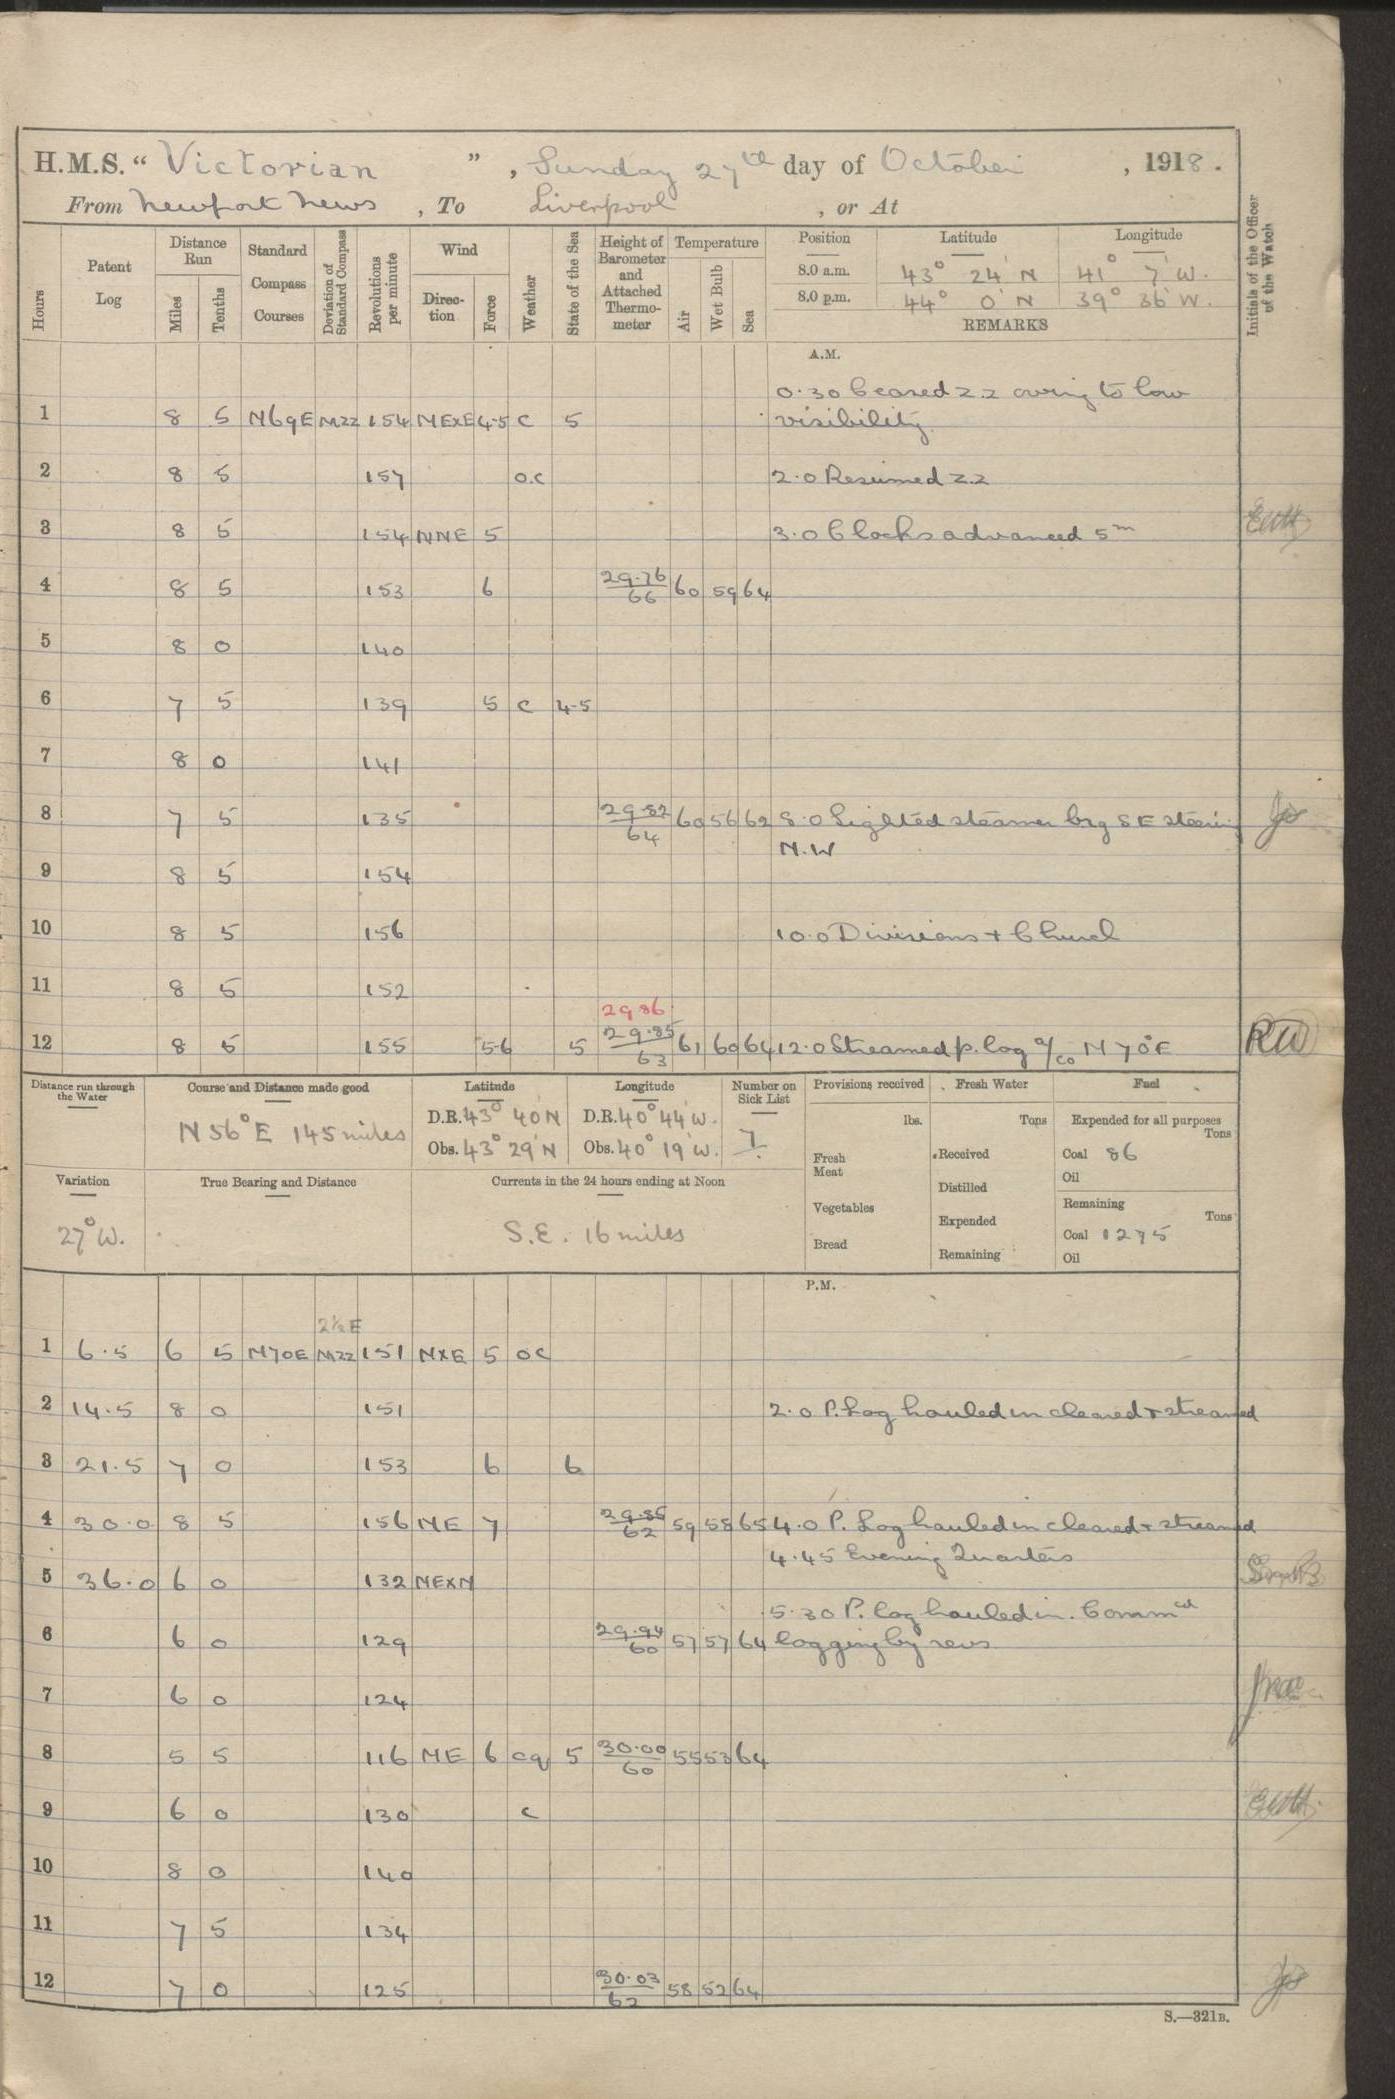 H.M.S. "Victorian", Sunday 27th day of October, 1918.
From Newport News, To Liverpool, or At
Hours
Patent Log
Distance Run
Miles
Tenths
Standard Compass Courses
Deviation of Standard Compass
Revolutions per minute
Wind
Direction
Force
Weather
State of the Sea
Height of Barometer and Attached Thermometer
Temperature
Air
Wet Bulb
Sea
Position Latitude Longitude
8.0 a.m. 43° 24' N 41° 7' W.
8.0 p.m. 44° 0' N 39° 36' W.
REMARKS
Initials of the Officer of the Watch
A.M.
0.30 Ceased z.z owing to low
1 8 5 N69E M22 154 NExE 4-5 C 5 visibility
2 8 5 157 o.c 2.0 Resumed z.z
3 8 5 154 NNE 5 3.0 Clocks advanced 5m
4 8 5 153 6 29.76 66 60 59 64
5 8 0 140
6 7 5 139 5 C 4-5
7 8 0 141
8 7 5 135 29.82 64 60 56 62 8.0 Sighted steamer brg SE steering
N.W
9 8 5 154
10 8 5 156 10.0 Divisions + Church
11 8 5 152
29 86
12 8 5 155 5-6 5 29.85 63 61 60 64 12.0 Streamed p. log a/co N 70° E RW
Distance run through the Water
Course and Distance made good
N 56° E 145 miles
Latitude
D.R. 43° 40' N
Obs. 43° 29' N
Longitude
D.R. 40° 44' W.
Obs. 40° 19' W.
Number on Sick List
7.
Provisions received
lbs.
Fresh Meat
Vegetables
Bread
Fresh Water
Tons
Received
Distilled
Expended
Remaining
Fuel
Expended for all purposes
Tons
Coal 86
Oil
Remaining
Tons
Coal 1275
Oil
Variation
27° W.
True Bearing and Distance
Currents in the 24 hours ending at Noon
S.E. 16 miles
P.M.
2½ E
1 6.5 6 5 N70E M22 151 NxE 5 oc
2 14.5 8 0 151 2.0 P. Log hauled in cleared + streamed
3 21.5 7 0 153 6 6
4 30.0 8 5 156 NE 7 29.86 62 59 58 65 4.0 P. Log hauled in cleared + streamed
4.45 Evening Quarters
5 36.0 6 0 132 NExN
5.30 P. log hauled in. Commcd
6 6 0 129 29.94 60 57 57 64 logging by revs
7 6 0 124
8 5 5 116 NE 6 cq 5 30.00 60 55 53 64
9 6 0 130 c
10 8 0 140
11 7 5 134
12 7 0 125 30.03 62 58 52 64
S.—321B.